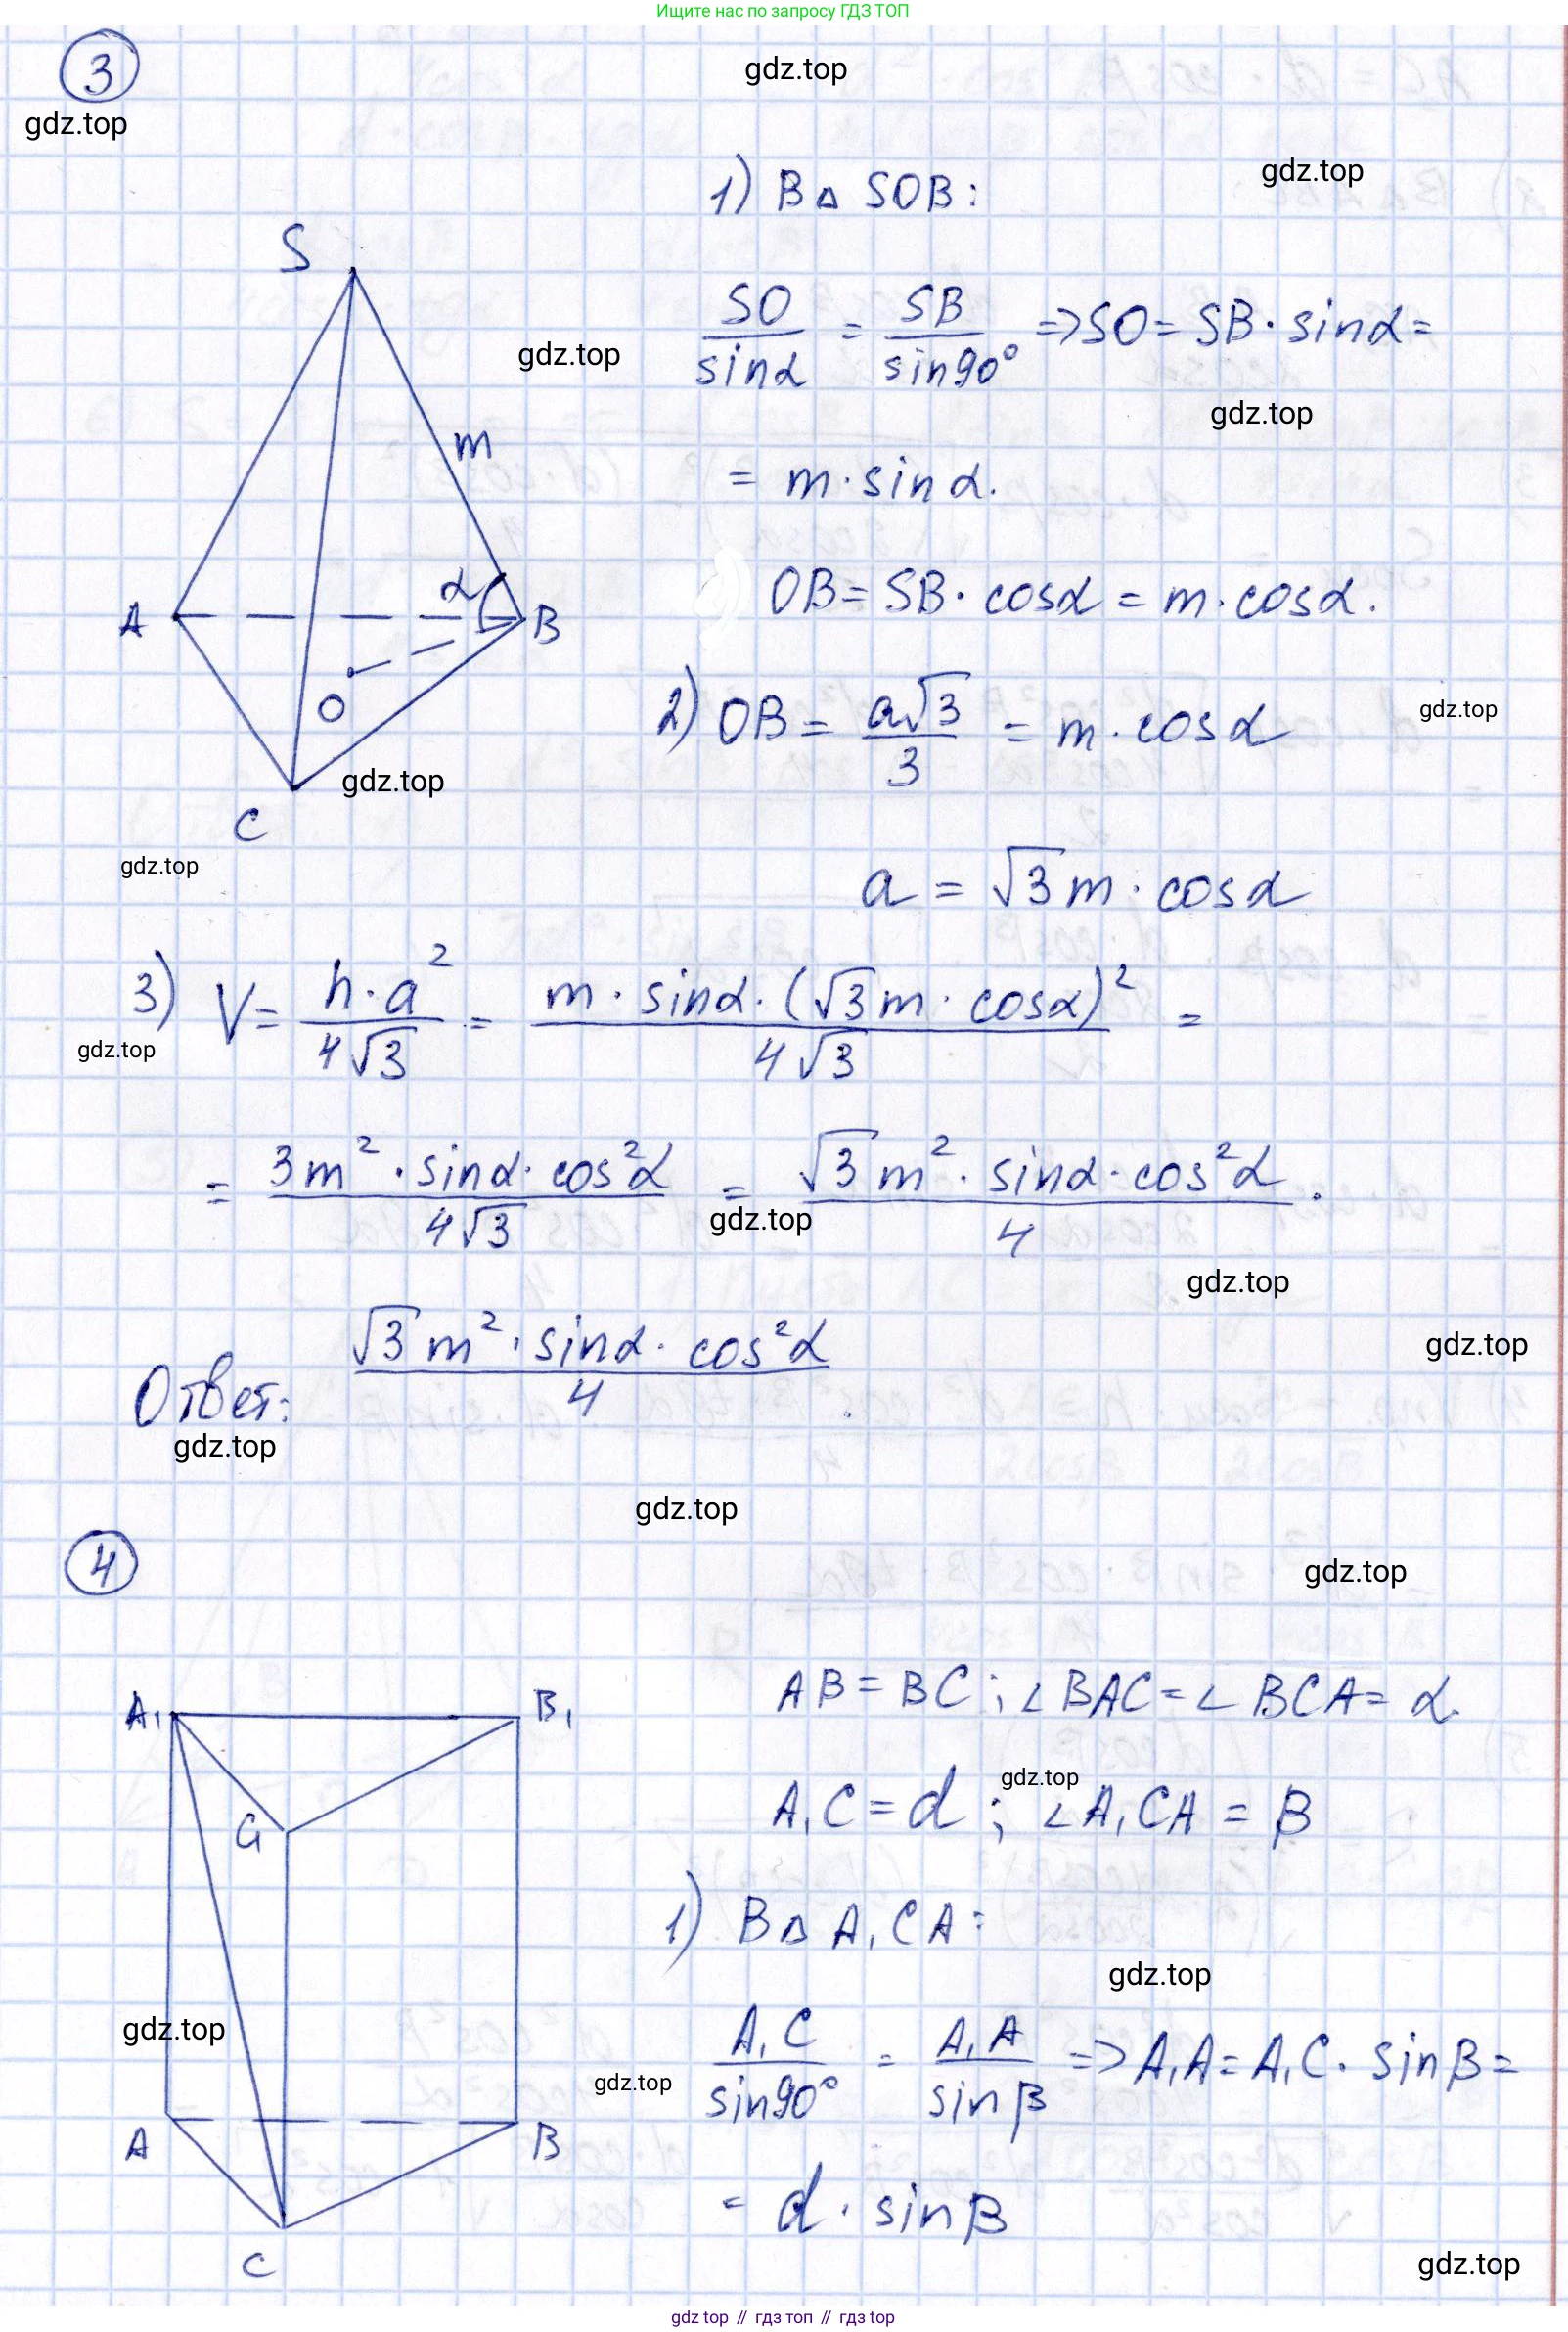 Ищите нас по запросу ГДЗ ТОП
3
gdz.top
gdz.top
gdz.top
1) В △ SOB:
S
SO/sinα = SB/sin90° => SO = SB · sinα =
gdz.top
gdz.top
m
= m · sinα.
α
OB = SB · cosα = m · cosα.
A
B
O
2) OB = a√3/3 = m · cosα
gdz.top
gdz.top
C
gdz.top
a = √3m · cosα
3) V = h · a²/4√3 = m · sinα · (√3m · cosα)²/4√3 =
gdz.top
= 3m² · sinα · cos²α/4√3 = √3m² · sinα · cos²α/4.
gdz.top
gdz.top
gdz.top
Ответ: √3m² · sinα · cos²α/4.
gdz.top
gdz.top
4
gdz.top
A₁
B₁
AB = BC; ∠BAC = ∠BCA = α.
gdz.top
C₁
A₁C = d; ∠A₁CA = β
1) В △ A₁CA:
gdz.top
gdz.top
A₁C/sin90° = A₁A/sinβ => A₁A = A₁C · sinβ =
gdz.top
A
B
= d · sinβ
C
gdz.top
gdz top // гдз топ // гдз top